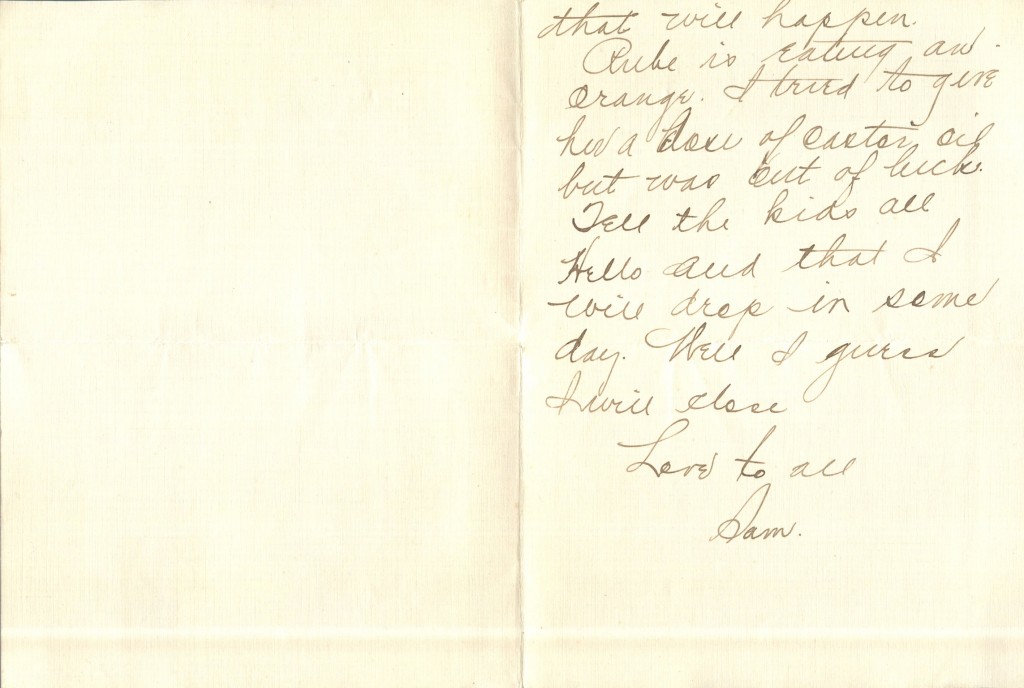 that will happen.
Rube is eating an
orange. I tried to give
her a dose of castor oil
but was out of luck.
Tell the kids all
Hello and that I
will drop in some
day. Well I guess
I will close
Love to all
Sam.